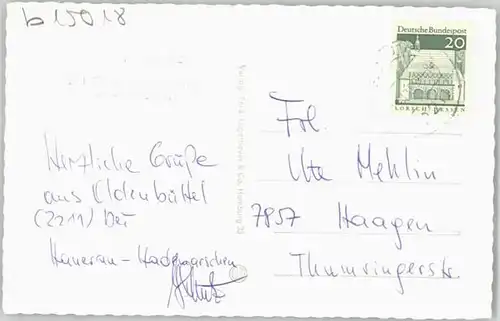 b 15018
Deutsche Bundespost
20
LORSCH / HESSEN
Herzliche Grüße
aus Oldenbüttel
(2211) bei
Hanerau-Hademarschen
Frl.
Ute Mehlin
7857 Haagen
Thumringerstr.